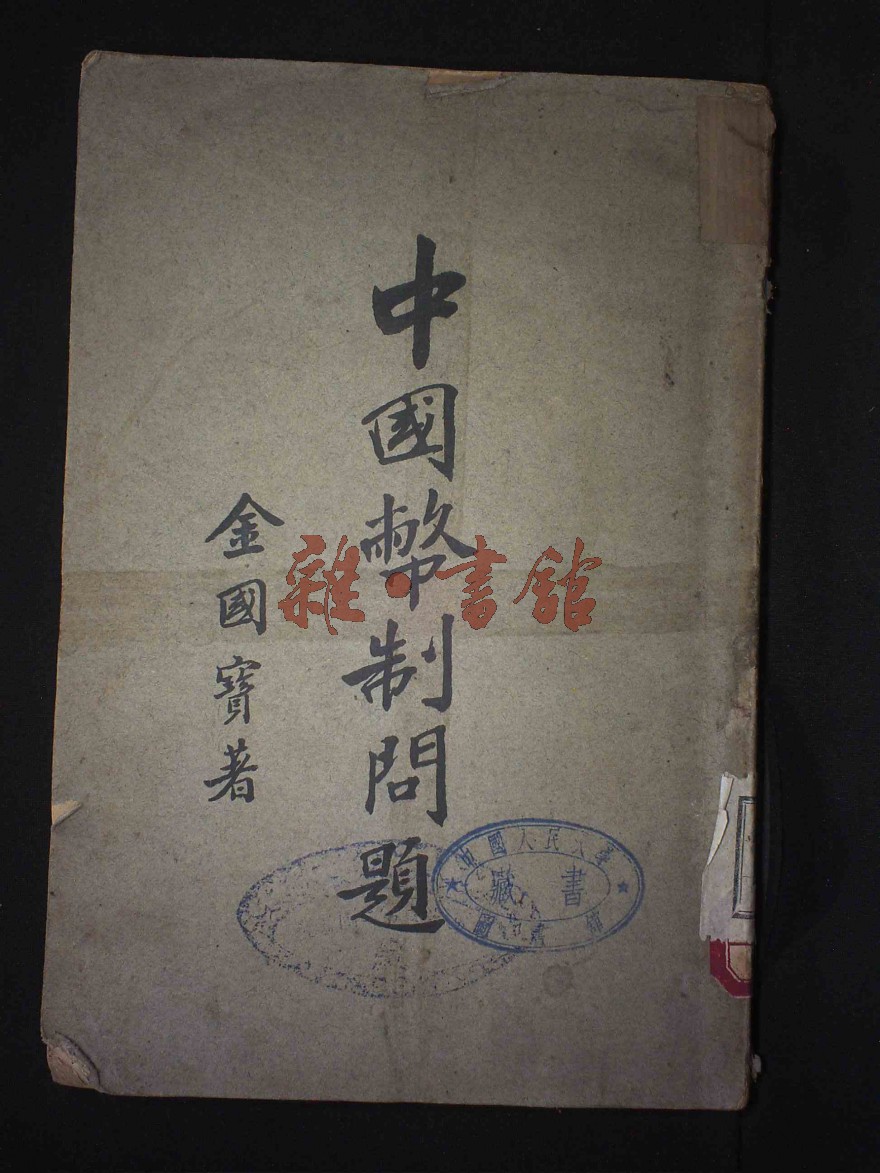 中國幣制問題
金國寶著
雜·書館
中國人民大學
藏書
圖書館